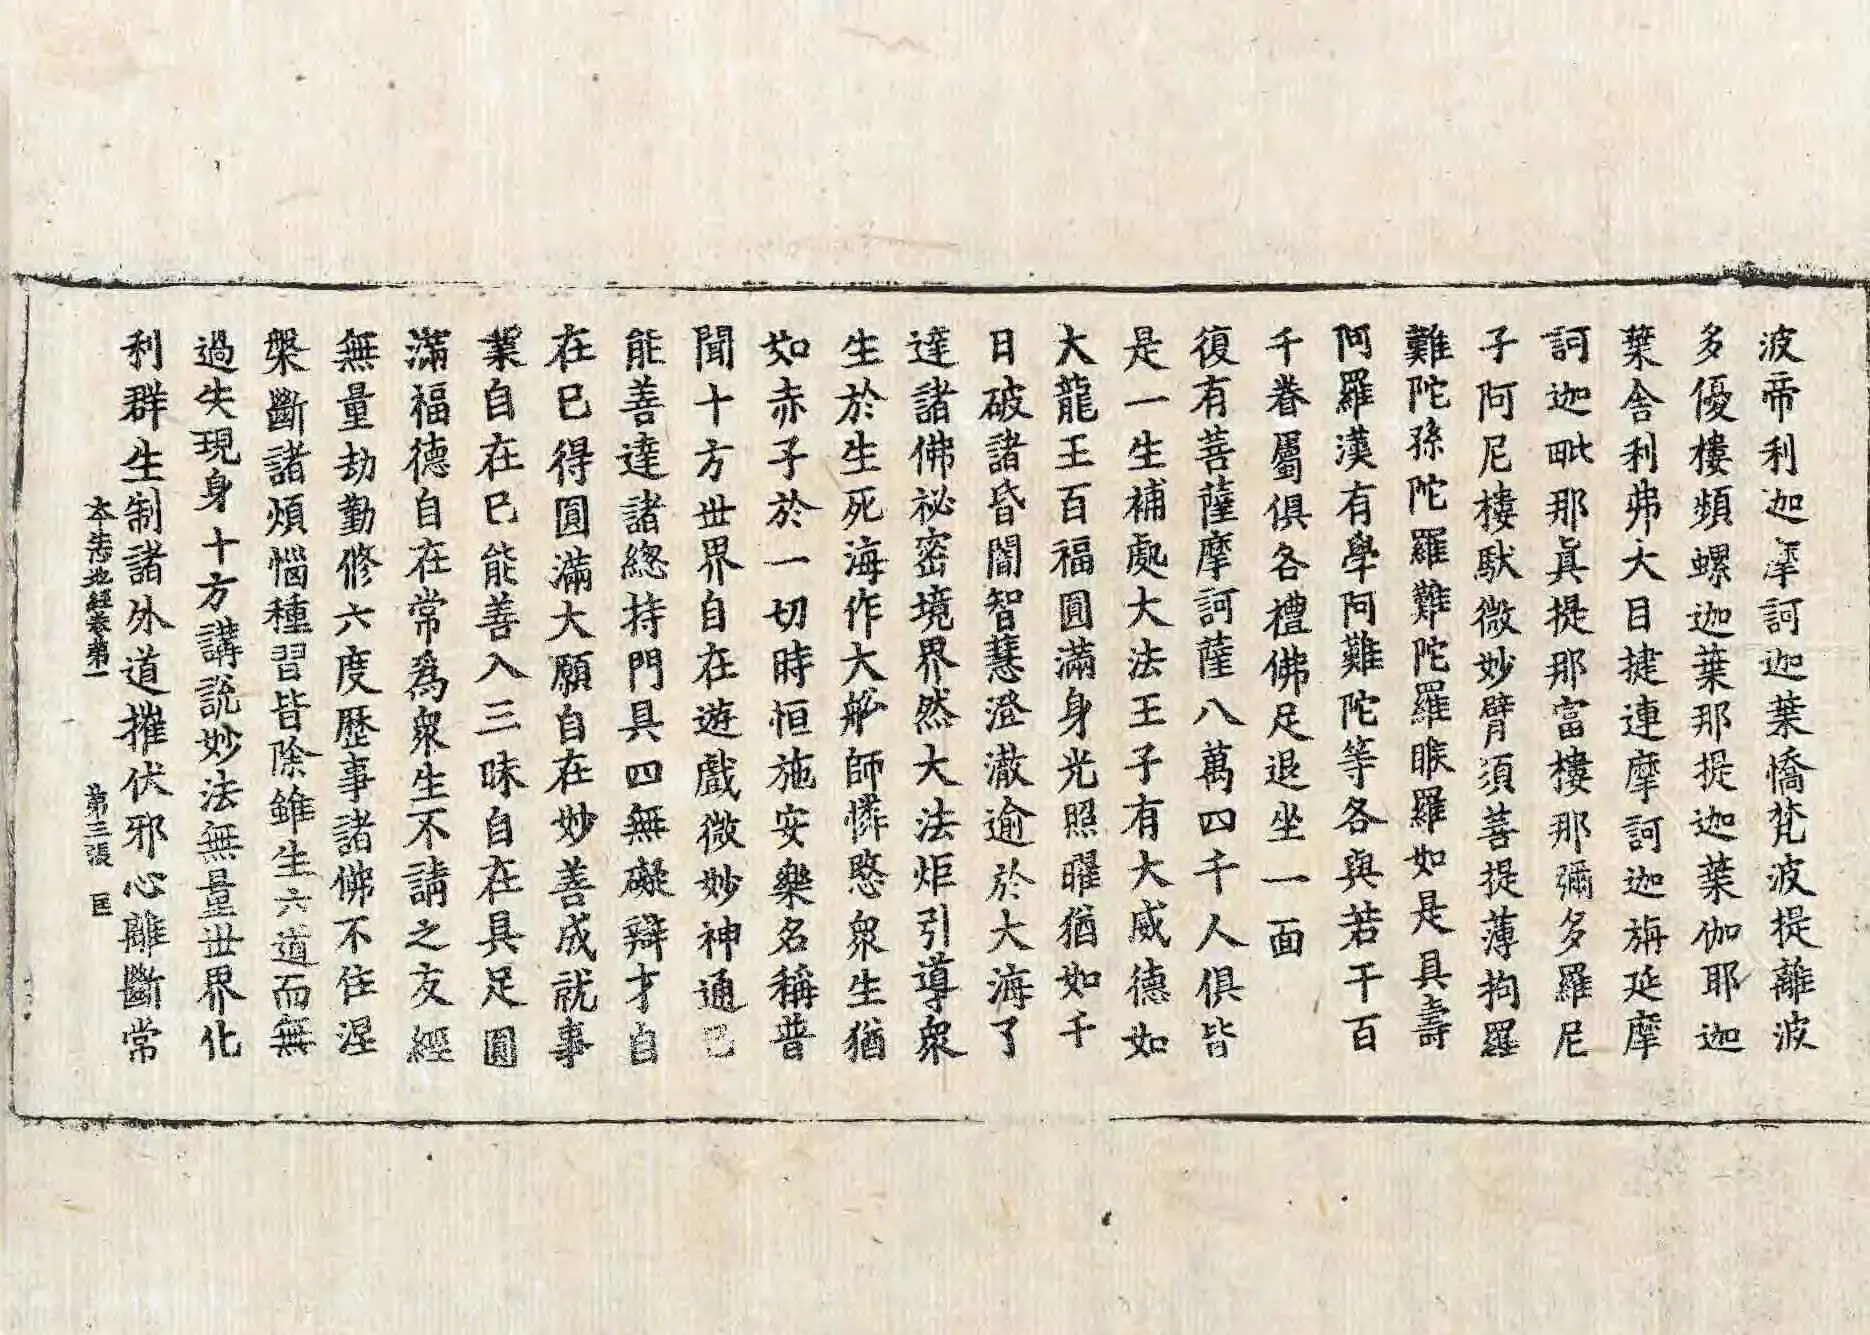 波帝利迦摩訶迦葉憍梵波提離波
多優樓頻螺迦葉那提迦葉伽耶迦
葉舍利弗大目揵連摩訶迦旃延摩
訶迦毗那真提那富樓那彌多羅尼
子阿尼樓馱微妙臂須菩提薄拘羅
難陀孫陀羅難陀羅睺羅如是具壽
阿羅漢有學阿難陀等各與若干百
千眷屬俱各禮佛足退坐一面
復有菩薩摩訶薩八萬四千人俱皆
是一生補處大法王子有大威德如
大龍王百福圓滿身光照曜猶如千
日破諸昏闇智慧澄澈逾於大海了
達諸佛祕密境界然大法炬引導衆
生於生死海作大船師憐愍衆生猶
如赤子於一切時恒施安樂名稱普
聞十方世界自在遊戲微妙神通已
能善達諸總持門具四無礙辯才自
在已得圓滿大願自在妙善成就事
業自在已能善入三昧自在具足圓
滿福德自在常為衆生不請之友經
無量劫勤修六度歷事諸佛不住涅
槃斷諸煩惱種習皆除雖生六道而無
過失現身十方講說妙法無量世界化
利群生制諸外道摧伏邪心離斷常
本生心地經卷第一 第三張 匡